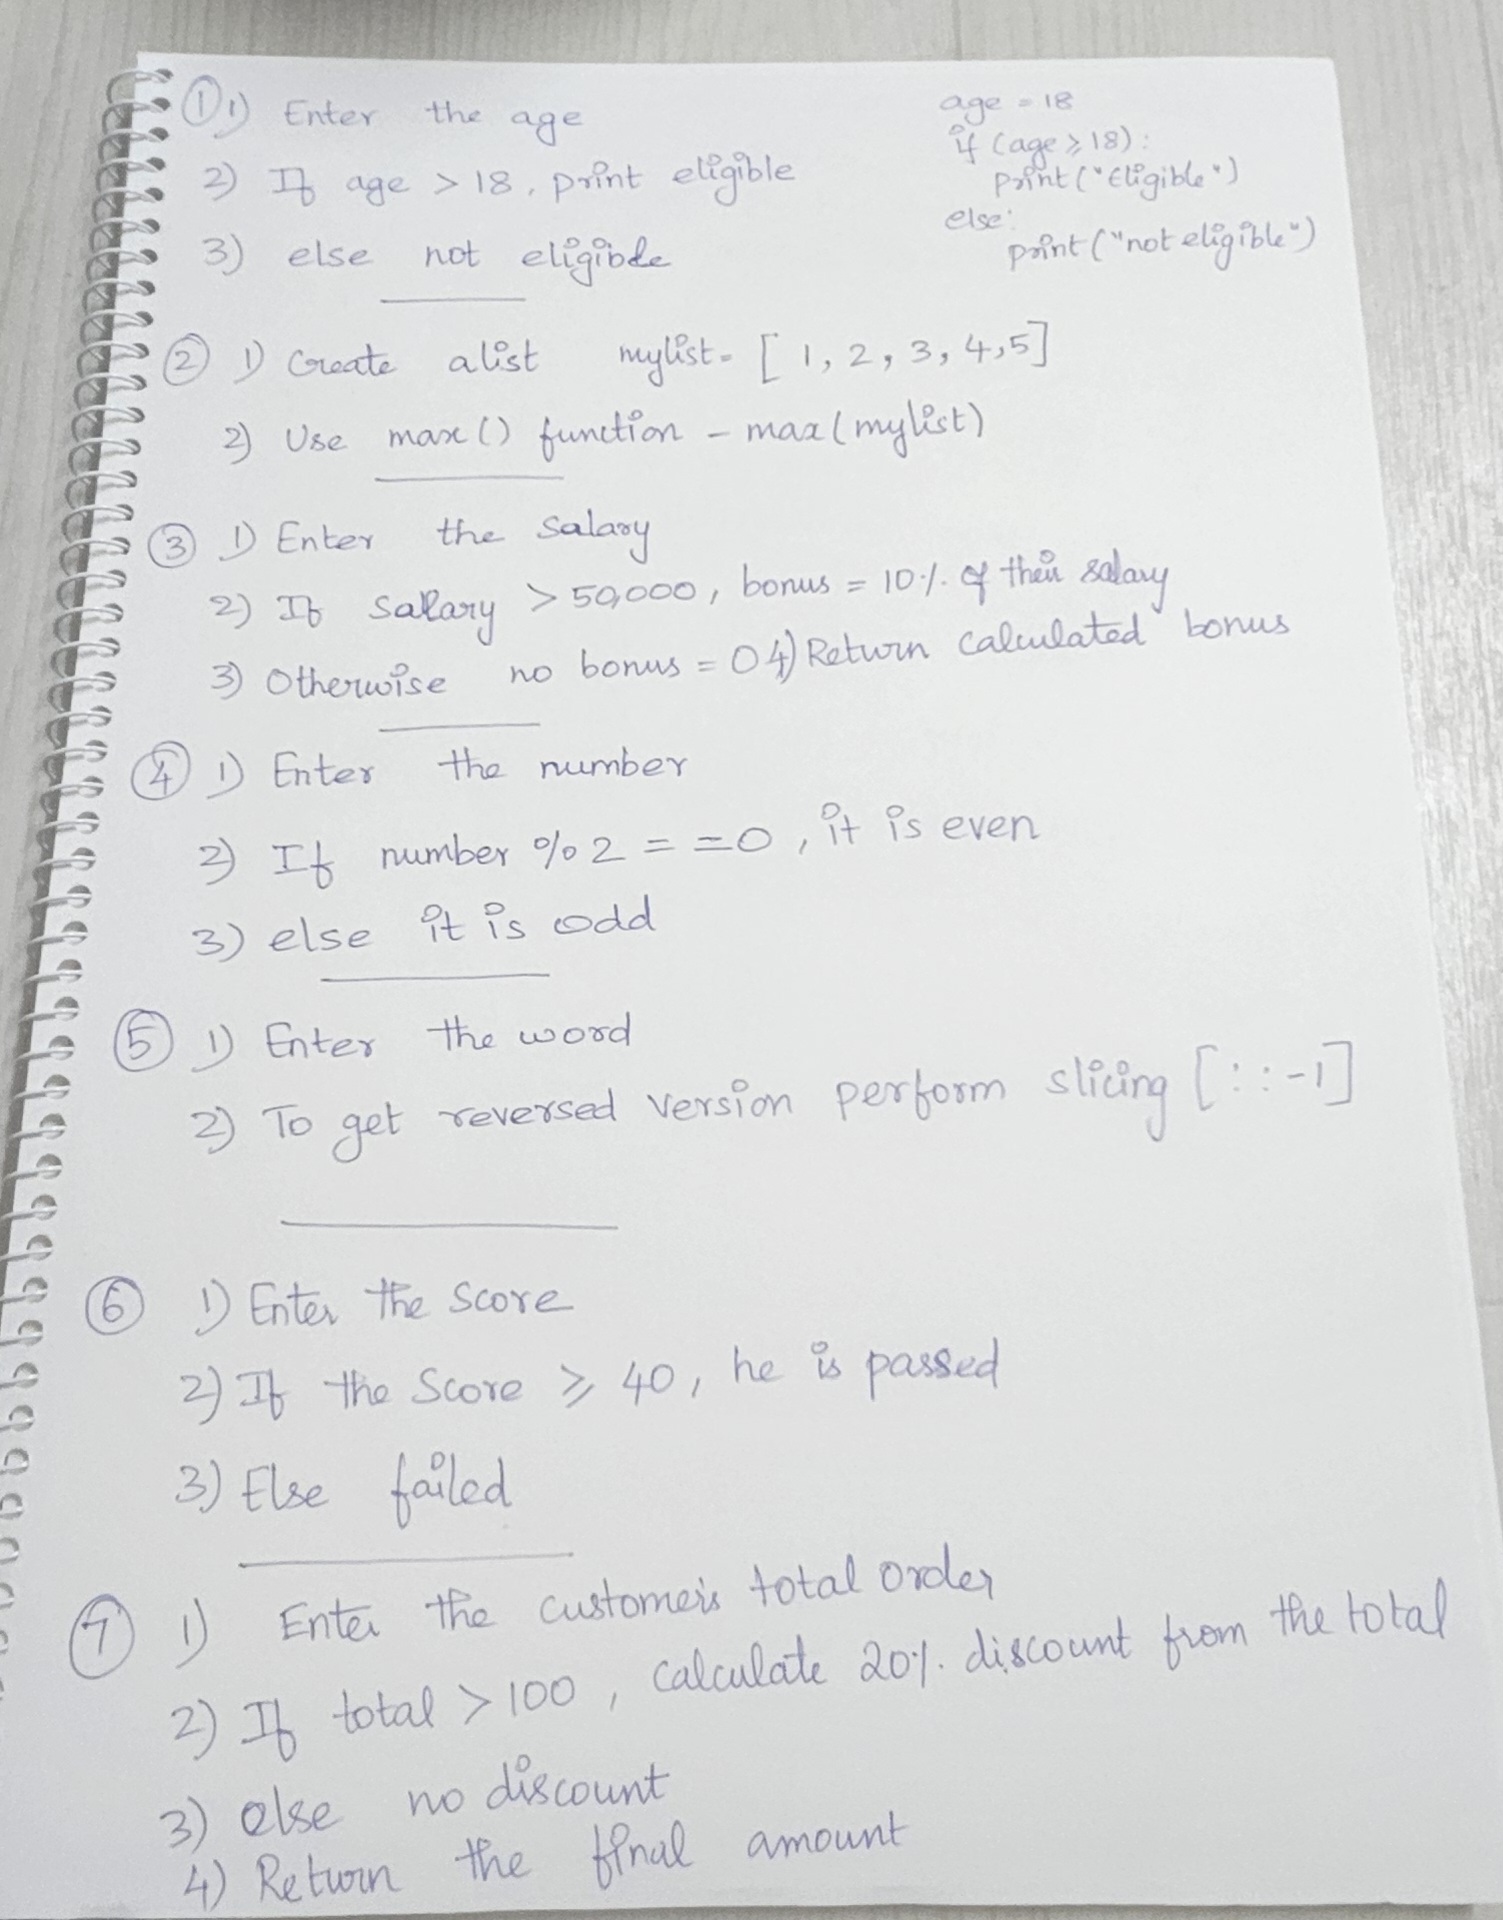 ① 1) Enter the age
2) If age > 18, print eligible
3) else not eligible
age = 18
if (age ≥ 18):
print("Eligible")
else:
print("not eligible")
② 1) Create a list mylist = [1, 2, 3, 4, 5]
2) Use max() function - max(mylist)
③ 1) Enter the salary
2) If salary > 50,000, bonus = 10% of their salary
3) Otherwise no bonus = 0 4) Return calculated bonus
④ 1) Enter the number
2) If number % 2 = = 0, it is even
3) else it is odd
⑤ 1) Enter the word
2) To get reversed version perform slicing [: : -1]
⑥ 1) Enter the score
2) If the Score ≥ 40, he is passed
3) Else failed
⑦ 1) Enter the customer's total order
2) If total > 100, calculate 20% discount from the total
3) else no discount
4) Return the final amount